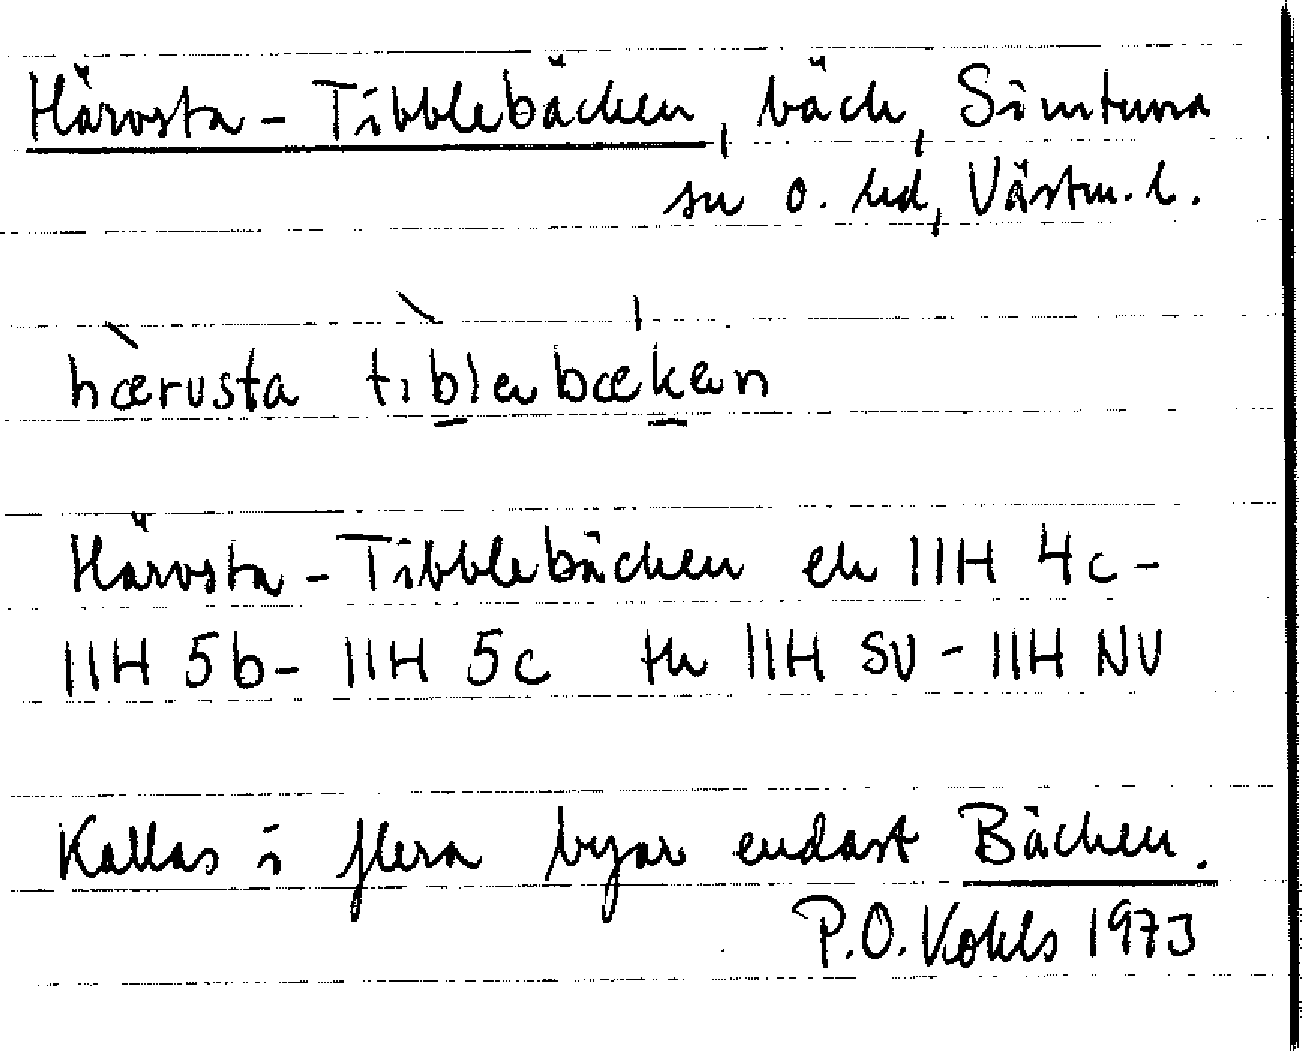 Härvsta - Tibblebäcken, bäck, Simtuna
sn o. hd, Västm. l.
hærvsta tiblebæken
Härvsta - Tibblebäcken ek 11H 4c -
11H 5b - 11H 5c tk 11H SV - 11H NV
Kallas i flera byar endast Bäcken.
P.O. Kohls 1973